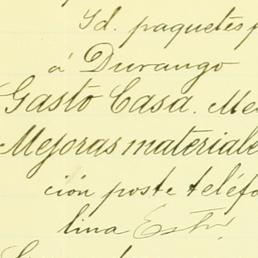 Id. paquetes p
á Durango
Gasto Casa. Me
Mejoras materiale
ción poste teléfo
lina